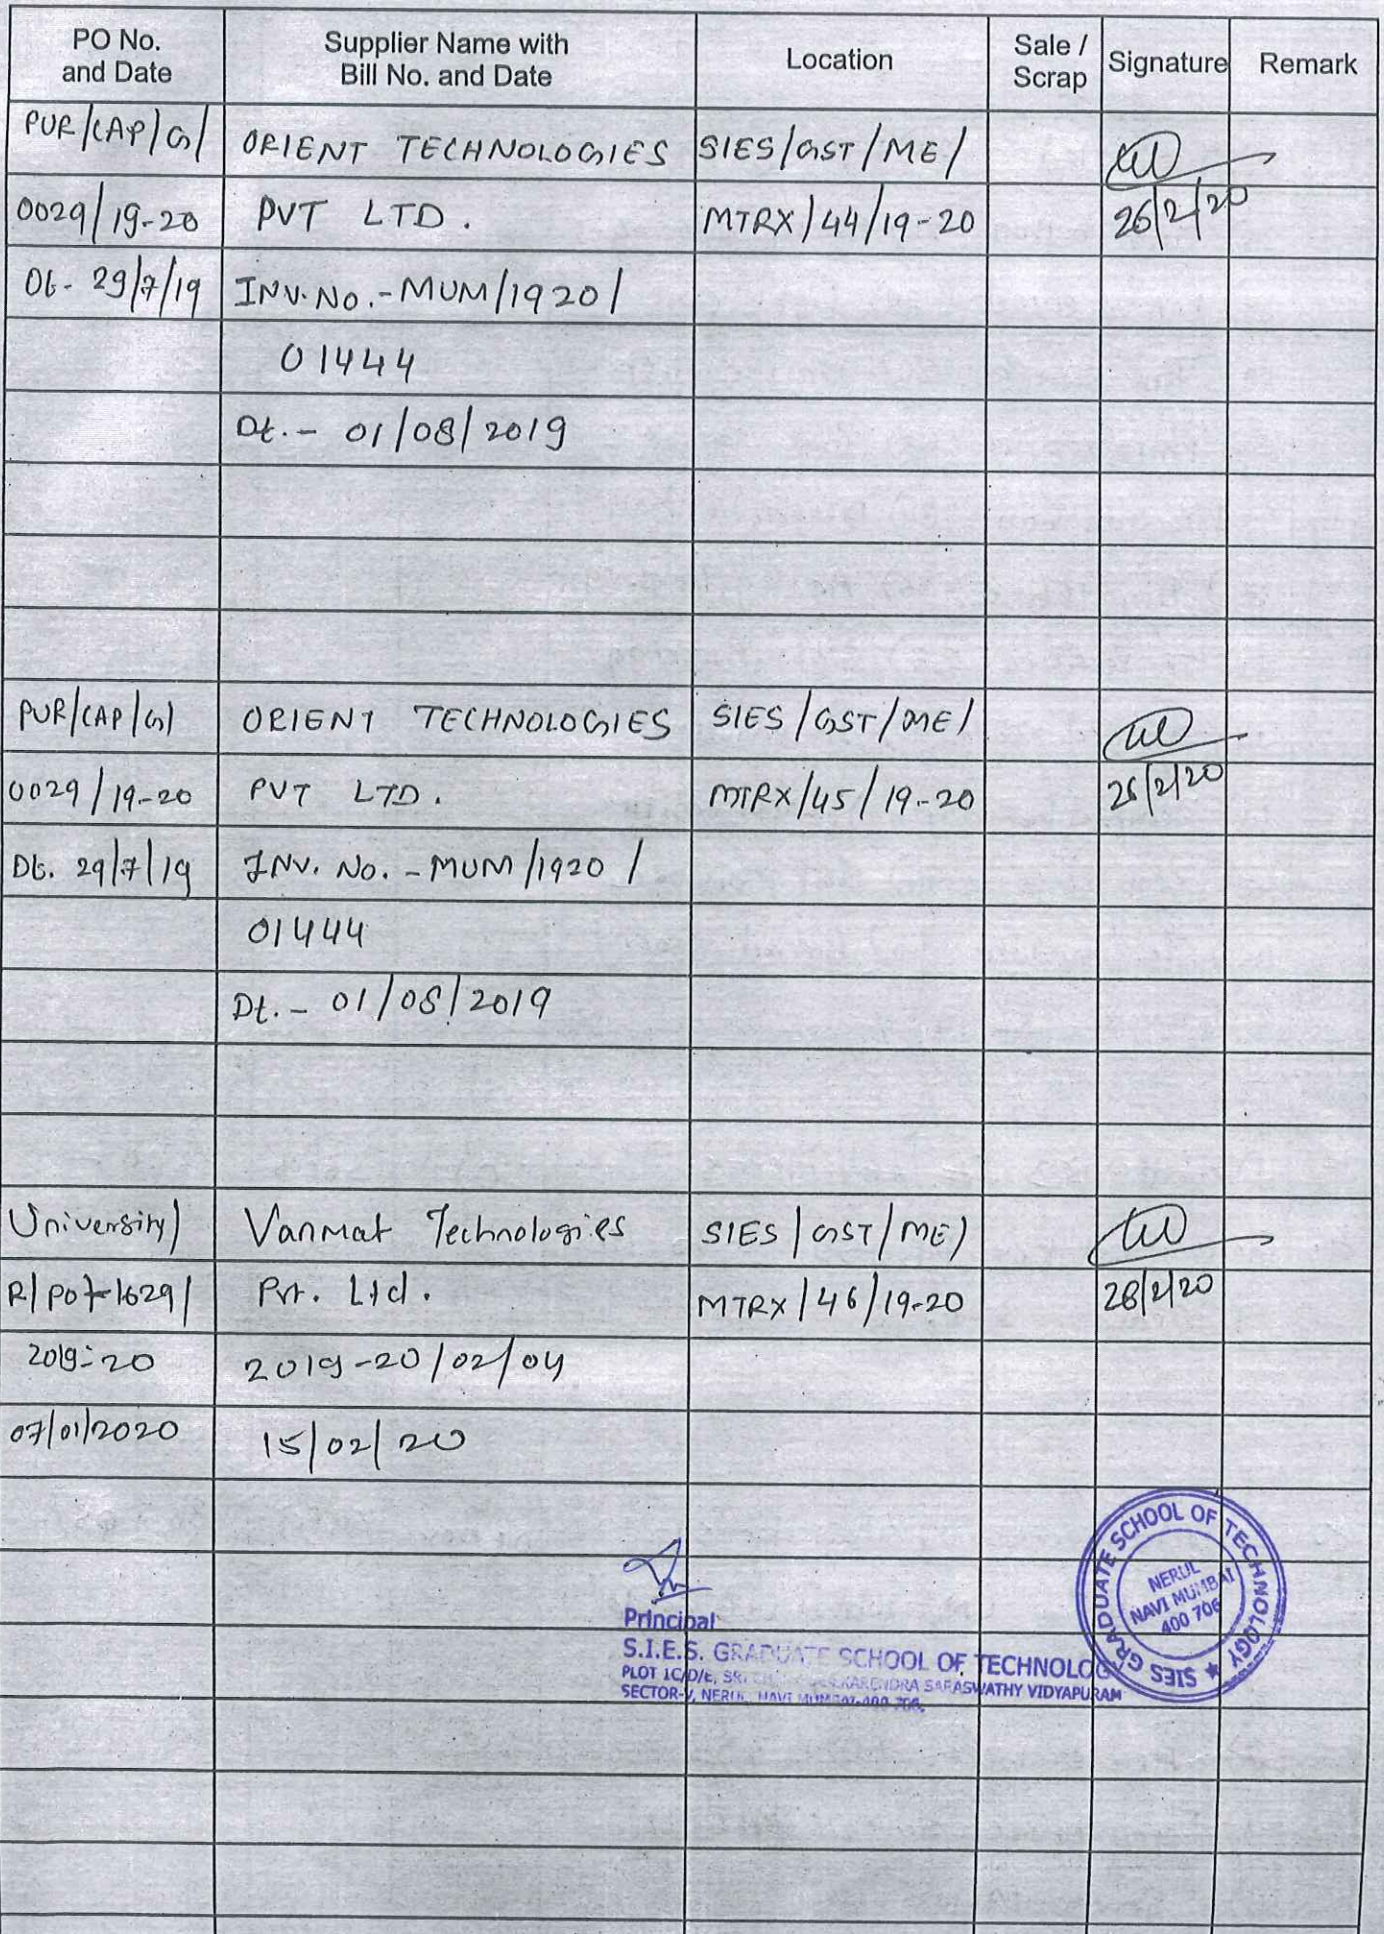 PO No. and Date
Supplier Name with Bill No. and Date
Location
Sale / Scrap
Signature
Remark
PUR/CAP/G/ ORIENT TECHNOLOGIES SIES/GST/ME/
0029/19-20 PVT LTD. MTRX/44/19-20 26/2/20
Dt- 29/7/19 INV. NO.-MUM/1920/
01444
Dt.- 01/08/2019
PUR/CAP/G/ ORIENT TECHNOLOGIES SIES/GST/ME/
0029/19-20 PVT LTD. MTRX/45/19-20 26/2/20
Dt. 29/7/19 INV. No. - MUM/1920/
01444
Dt.- 01/08/2019
University/ Vanmat Technologies SIES/GST/ME/
Pvt. Ltd. MTRX/46/19-20 28/2/20
2019-20 2019-20/02/04
07/01/2020 15/02/20
Principal
S.I.E.S. GRADUATE SCHOOL OF TECHNOLOG
PLOT 1C/D/E, SRI SARASWATHY VIDYAPURAM
SECTOR-V, NERUL, NAVI MUMBAI-400 706.
SIES GRADUATE SCHOOL OF TECHNOLOGY ★
NERUL
NAVI MUMBAI
400 706